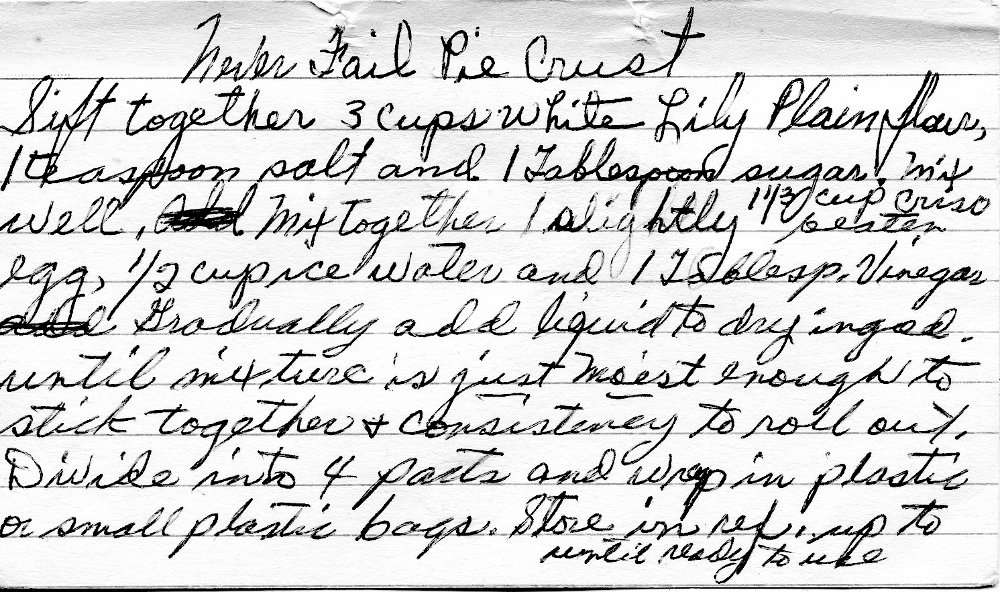 Never Fail Pie Crust
Sift together 3 cups White Lily Plain flour,
1 teaspoon salt and 1 Tablespoon sugar. Mix
well. Mix together 1 slightly 1 1/3 cup Crisco
beaten
egg, 1/2 cup ice water and 1 Tablesp. Vinegar
Gradually add liquid to dry ingred.
until mixture is just moist enough to
stick together & consistency to roll out.
Divide into 4 parts and wrap in plastic
or small plastic bags. Store in ref. up to
until ready to use